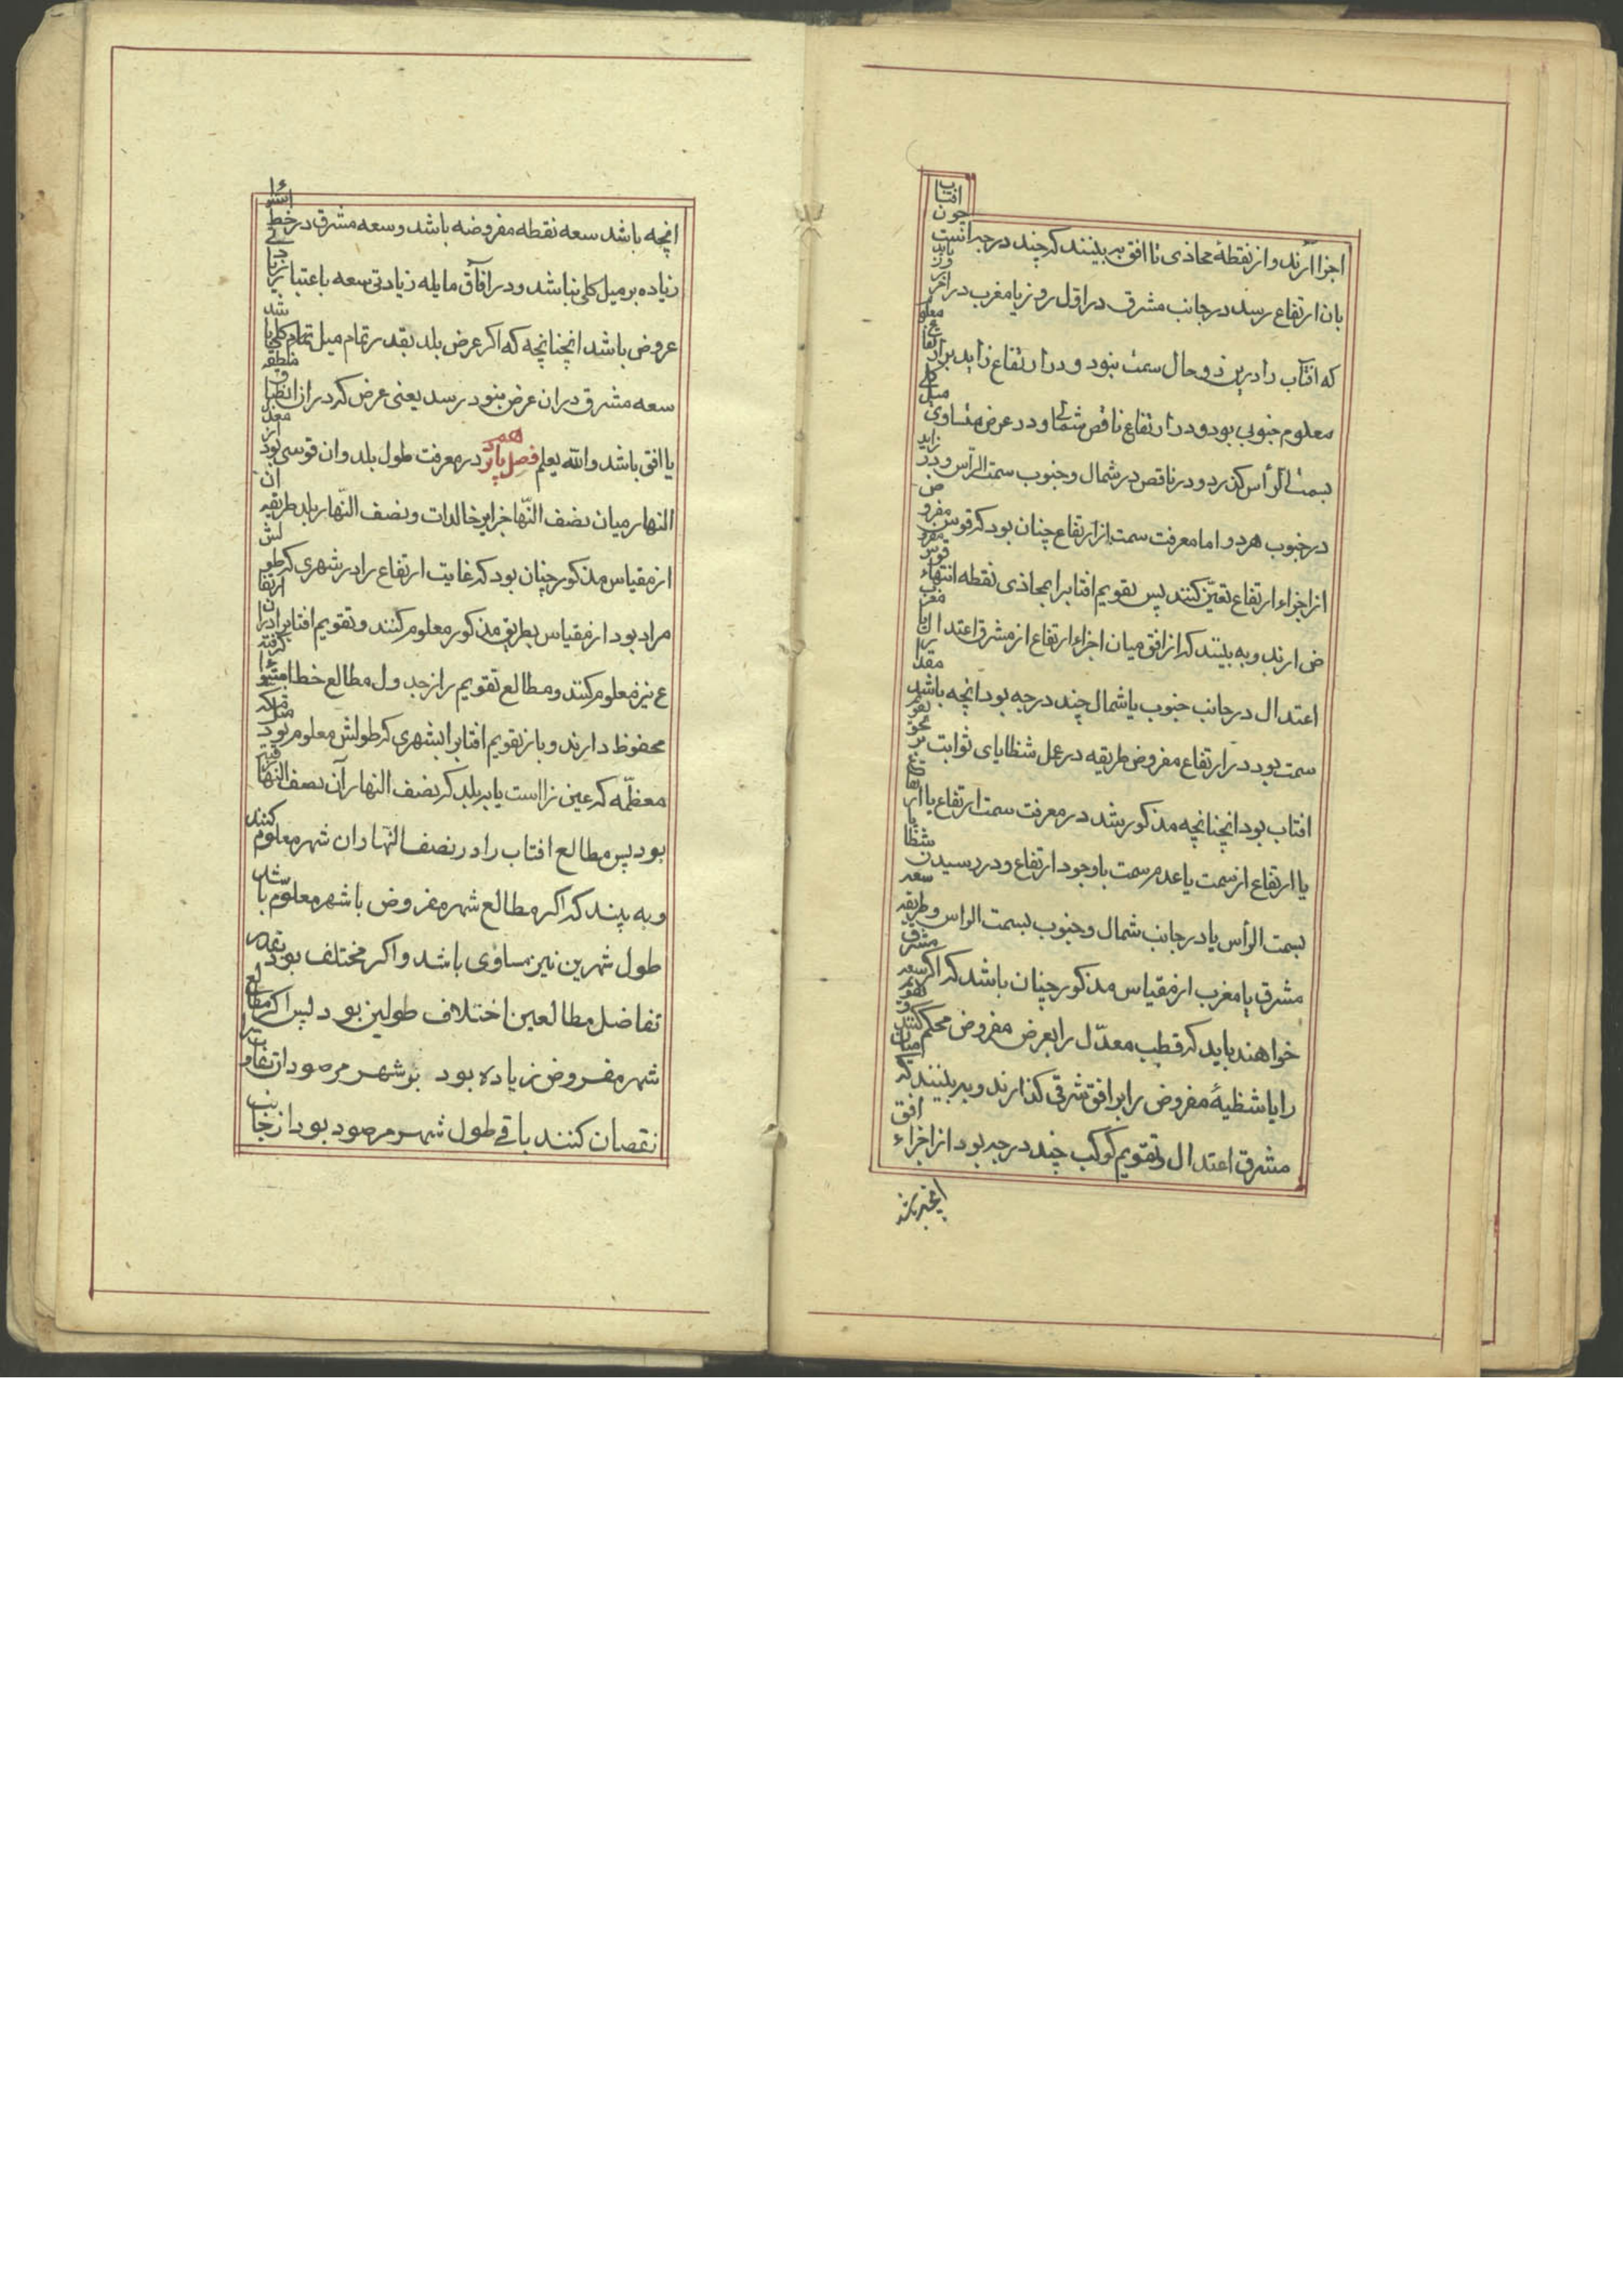 اجزا ارند و از نقطهٔ محاذی تا افق به بینند که چند درجه است چون افتاب
بان ارتفاع رسد در جانب مشرق در اول روز یا مغرب در اخر
که افتاب را درین دو حال سمت نبود و در ارتفاع زاید بر ارتفاع
معلوم جنوبی بود و در ارتفاع ناقص شمالی و در عرض متساوی میل کلی
بسمت الرأس کذرد و در ناقص در شمال و جنوب سمت الرأس و در زاید
در جنوب هر دو اما معرفت سمت از ارتفاع چنان بود که قوس مفروض
از اجزاء ارتفاع تعیّن کنند پس تقویم افتاب را بمحاذی نقطه انتهاء قوس مفرو
ض ارند و به بینند که از افق میان اجزاء ارتفاع از مشرق اعتدال یا مغرب
اعتدال در جانب جنوب یا شمال چند درجه بود انچه باشد مقدار
سمت بود در ارتفاع مفروض طریقه در عمل شظایای ثوابت
افتاب بود انچنانچه مذکور شد در معرفت سمت ارتفاع یا ارتفاع
یا ارتفاع از سمت یا عدم سمت با وجود ارتفاع و در رسیدن شظایا
بسمت الرأس یا در جانب شمال و جنوب بسمت الراس و طریقه سعه
مشرق یا مغرب از مقیاس مذکور چنان باشد که اکر سعه مشرق
خواهند باید که قطب معدّل را بعرض مفروض محکم کنند و تقویم
را یا شظیهٔ مفروض را بر افق شرقی کذارند و به بینند که میان
مشرق اعتدال و تقویم کوکب چند درجه بود از اجزاء افق
انچه باشد
انچه باشد سعه نقطه مفروضه باشد و سعه مشرق در خط استواء
زیاده بر میل کلی نباشد و در افاق مایله زیادتی سعه باعتبار زیادتی
عروض باشد انچنانچه که اکر عرض بلد بقدر تمام میل کلی باشد
سعه مشرق دران عرض بنود درسد یعنی عرض که دران انطباق منطقه
یا افق باشد والله یعلم فصل یازدهم در معرفت طول بلد و ان قوسی بود از معدل
النهار میان نصف النّهار جزایر خالدات و نصف النّهار بلد طریقه ان
از مقیاس مذکور چنان بود که غایت ارتفاع را در شهری که طولش
مراد بود از مقیاس بطریق مذکور معلوم کنند و تقویم افتاب را دران ارتفا
ع نیز معلوم کنند و مطالع تقویم را از جدول مطالع خط استواء کرفته
محفوظ دارند و باز تقویم افتاب را بشهری که طولش معلوم بود مثل مکه
معظّمه که عین زااست یا بر بلد که نصف النهار آن نصف النهار قبة
بود پس مطالع افتاب را در نصف النّهار ان شهر معلوم کنند
و به بینند که اکر مطالع شهر مفروض با شهر معلوم باشد
طول شهرین نیز مساوی باشد و اکر مختلف بود بقدر
تفاضل مطالعین اختلاف طولین بود پس اکر مطالع
شهر مفروض زیاده بود بر شهر مرصود ان تفاوت را
نقصان کنند باقی طول شهر مرصود بود از جانب